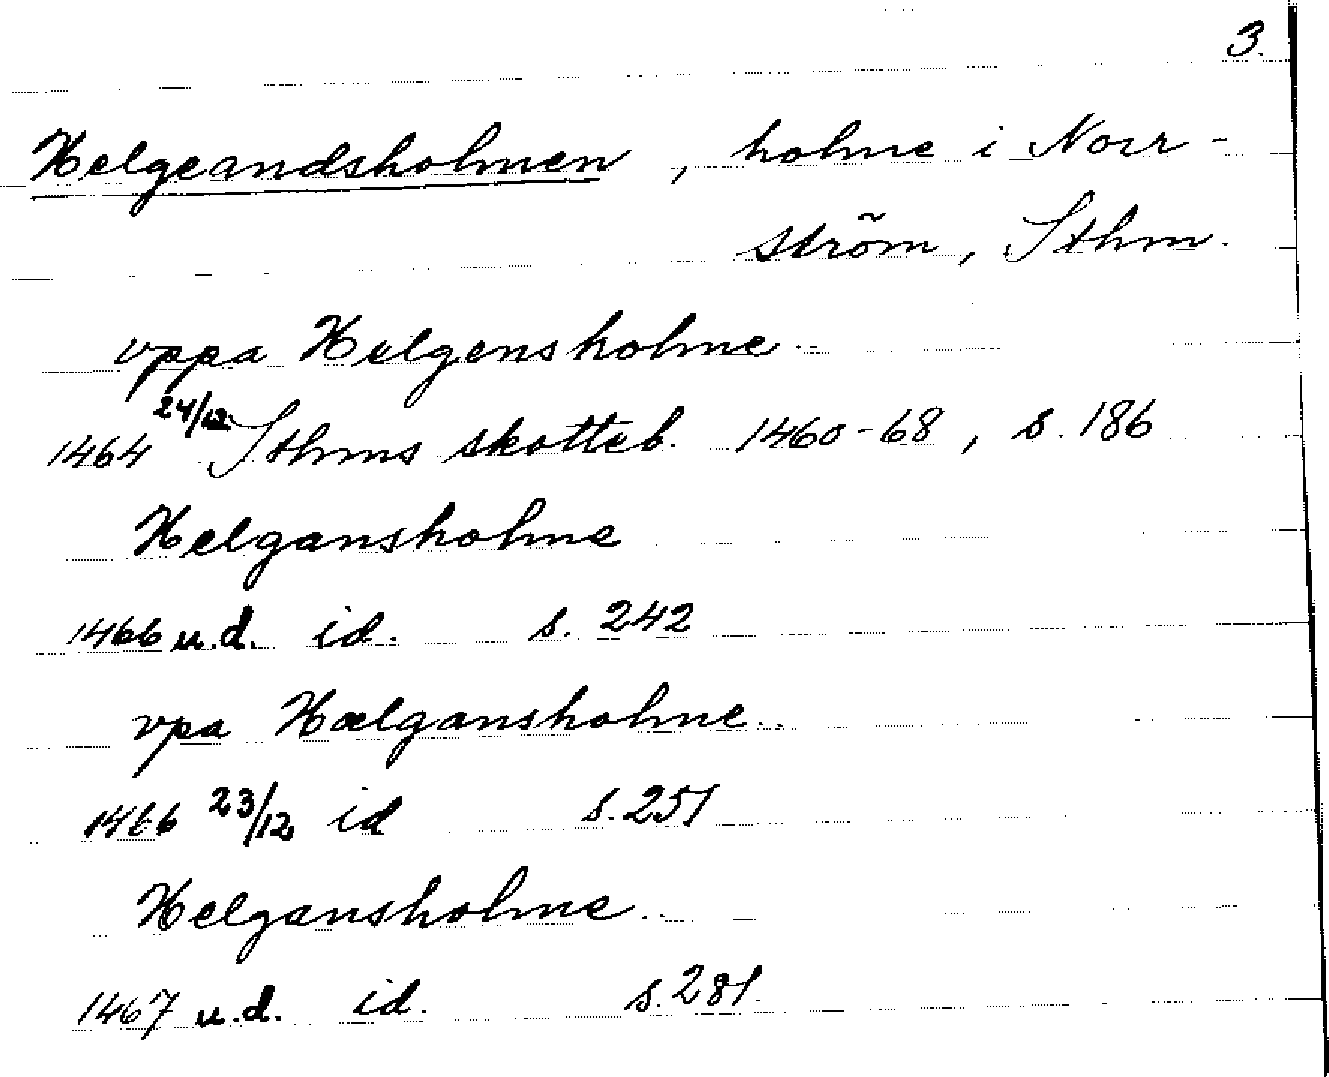 3.
Helgeandsholmen, holme i Norr-
ström, Sthm.
vppa Helgensholme
1464 24/12 Sthms skotteb. 1460-68, s. 186
Helgansholme
1466 u.d. id. s. 242
vpa Hælgansholme
1466 23/12 id s. 251
Helgansholme
1467 u.d. id. s. 281.